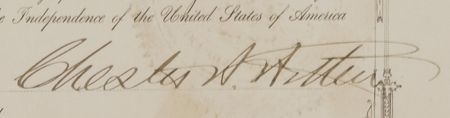 Independence of the United States of America
Chester A. Arthur